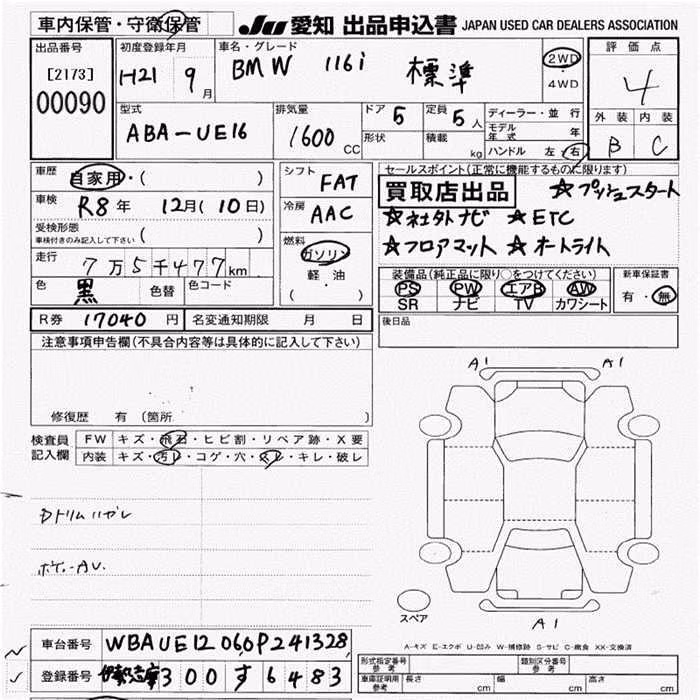 車内保管・守衛保管 JU 愛知 出品申込書 JAPAN USED CAR DEALERS ASSOCIATION
出品番号 初度登録年月 車名・グレード 評価点
[2173] H21 9月 BMW 116i 標準 2WD・4WD 4
00090
型式 排気量 ドア 5 定員 5人 ディーラー・並行 外装 内装
ABA-UE16 1600cc 形状 積載 kg モデル年式 年 B C
ハンドル 左・右
車歴 自家用・( ) シフト FAT セールスポイント(正常に機能するものに限ります)
車検 R8年 12月(10日) 冷房 AAC 買取店出品 ☆プッシュスタート
☆社外ナビ ☆ETC
受検形態 車検付きのみ記入して下さい ( ) 燃料 ガソリン ☆フロアマット ☆オートライト
走行 7万5千477km 軽・油 装備品(純正品に限り○をつけてください) 新車保証書
色 黒 色替 色コード ( ・ ) PS PW エアB AW 有・無
SR ナビ TV カワシート
R券 17040円 名変通知期限 月 日 後日品
注意事項申告欄(不具合内容等は具体的に記入して下さい)
A1 A1
修復歴 有(箇所 )
検査員記入欄 FW キズ・飛石・ヒビ割・リペア跡・X要
内装 キズ・汚レ・コゲ・穴・スレ・キレ・破レ
Dトリムハガレ
スペア
A1
A-キズ E-エクボ U-凹み W-補修跡 S-サビ C-腐食 XX-交換済
車台番号 WBAUE12060P241328
形式指定番号 参考 類別区分番号 参考
登録番号 300す6483
車庫証明用 参考 長さ cm 幅 cm 高さ cm